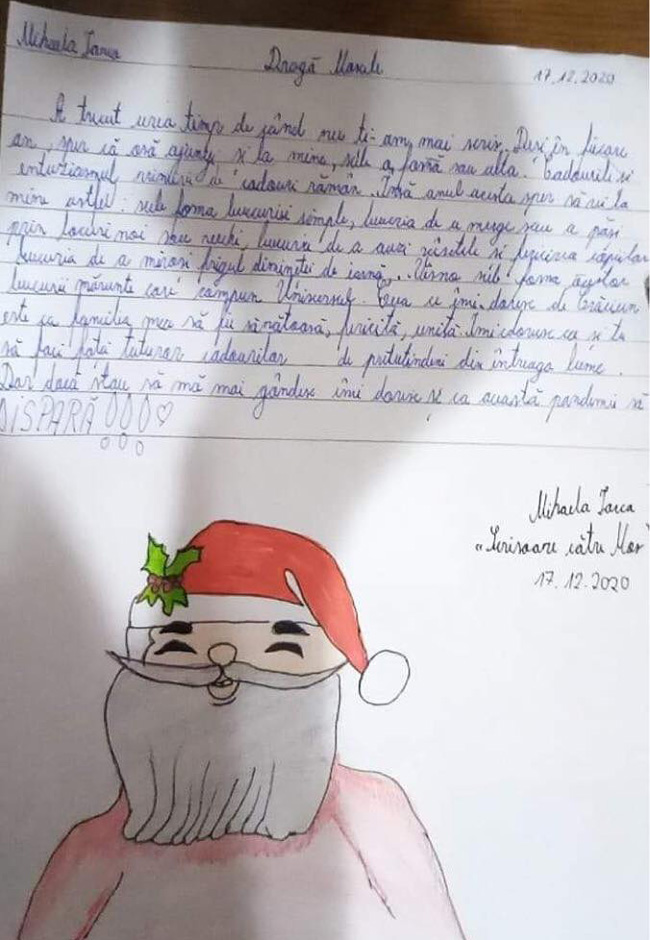 Mihaela Iacea
Dragă Moșule
17.12.2020
A trecut ceva timp de când nu ți-am mai scris. Deși în fiecare
an, sper că osă ajungi și la mine, sub o formă sau alta. Cadourile și
entuziasmul primirii de cadouri rămân. Însă anul acesta sper să vii la
mine astfel: sub forma bucuriei simple, bucuria de a merge sau a păși
prin locuri noi sau vechi, bucuria de a auzi râsetele și fericirea copiilor
bucuria de a mirosi frigul dimineții de iarnă,. sub forma acestor
bucurii mărunte care compun Universul. Ceea ce îmi doresc de Crăciun
este ca familia mea să fie sănătoasă, fericită, unită. Îmi doresc ca și tu
să faci față tuturor cadourilor de pretutindeni din întreaga lume.
Dar dacă stau să mă mai gândesc îmi doresc și ca această pandemii să
DISPARĂ
Mihaela Iacea
„Scrisoare către Moș"
17.12.2020